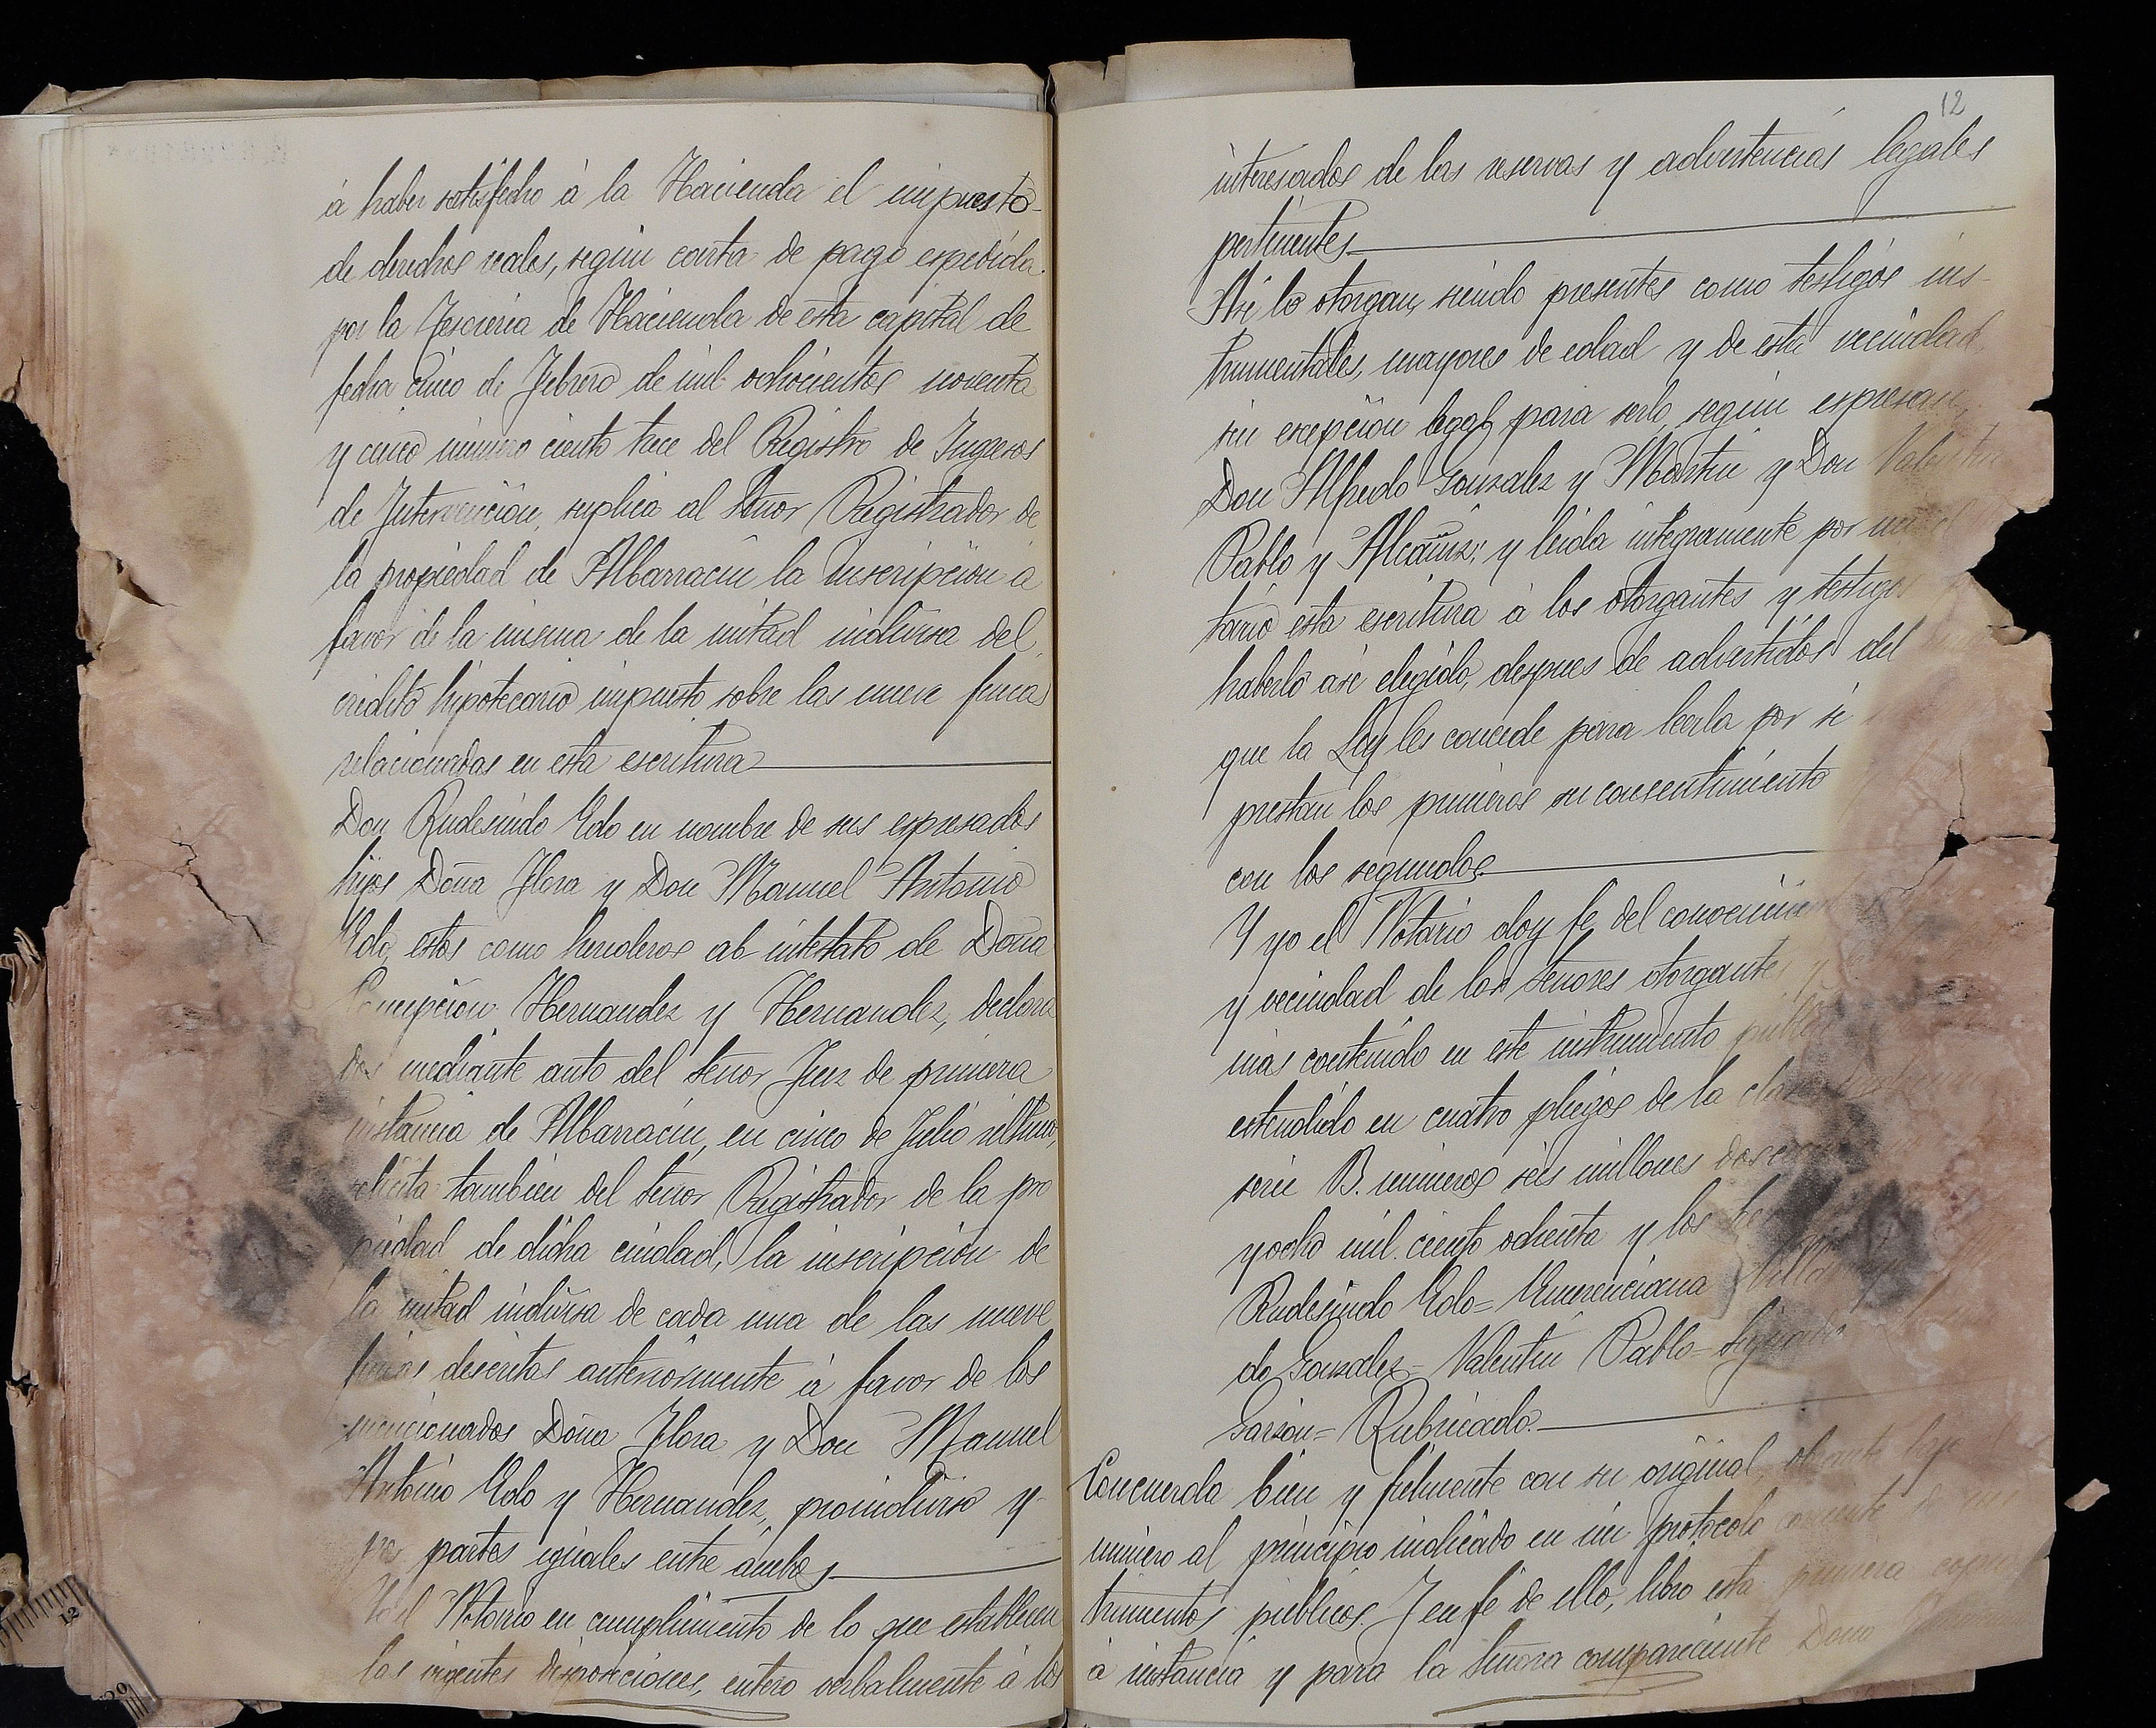 à haber satisfecho à la Hacienda el impuesto
de derechos reales, según carta de pago espedida
por la Tesoreria de Hacienda de esta capital de
fecha cinco de Febrero de mil ochocientos noventa
y cinco número ciento trece del Registro de Ingresos
de Intervención, suplica al Señor Registrador de
la propiedad de Albarracín la inscripción á
favor de la misma de la mitad indivisa del
crédito hipotecario impuesto sobre las nueve fincas
relacionadas en esta escritura
Don Rudesindo Edo en nombre de sus espresados
hijos Doña Flora y Don Manuel Antonio
Edo, estos como herederos ab intestato de Doña
Concepción Hernandez y Hernandez, declara
dos mediante auto del Señor Juez de primera
instancia de Albarracín, en cinco de Julio último,
solicita tambien del Señor Registrador de la pro
piedad de dicha ciudad, la inscripción de
la mitad indivisa de cada una de las nueve
fincas descritas anteriormente á favor de los
mencionados Doña Flora y Don Manuel
Antonio Edo y Hernandez, proindiviso y
por partes iguales entre ámbos
Yo el Notario en cumplimiento de lo que establecen
las vigentes disposiciones, entero verbalmente á los
12
interesados de las reservas y advertencias legales
pertinentes
Asi lo otorgan, siendo presentes como testigos ins-
trumentales, mayores de edad y de esta vecindad
sin escepción legal para serlo, según espresan,
Don Alfredo Gonzalez y Martín y Don Valentin
Pablo y Alcañiz; y leida integramente por mi el
tario esta escritura à los otorgantes y testigos
haberlo asi elegido, despues de advertidos del
que la Ley les concede para leerla por si
prestan los primeros su consentimiento
con los segundos
Y yo el Notario doy fe, del conocimiento
y vecindad de los Señores otorgantes y
mas contenido en este instrumento público
estendido en cuatro pliegos de la clase
serie B. números seis millones doscientos
y ocho mil ciento ochenta y los tres
Rudesindo Edo= Emerenciana
do Gonzalez= Valentín Pablo= Signado
Garzón= Rubricado.
Concuerda bien y fielmente con su original, obrante bajo
número al principio indicado en mi protocolo corriente de
trumentos públicos. Y en fé de ello, libro esta primera copia
à instancia y para la Señora compareciente Doña